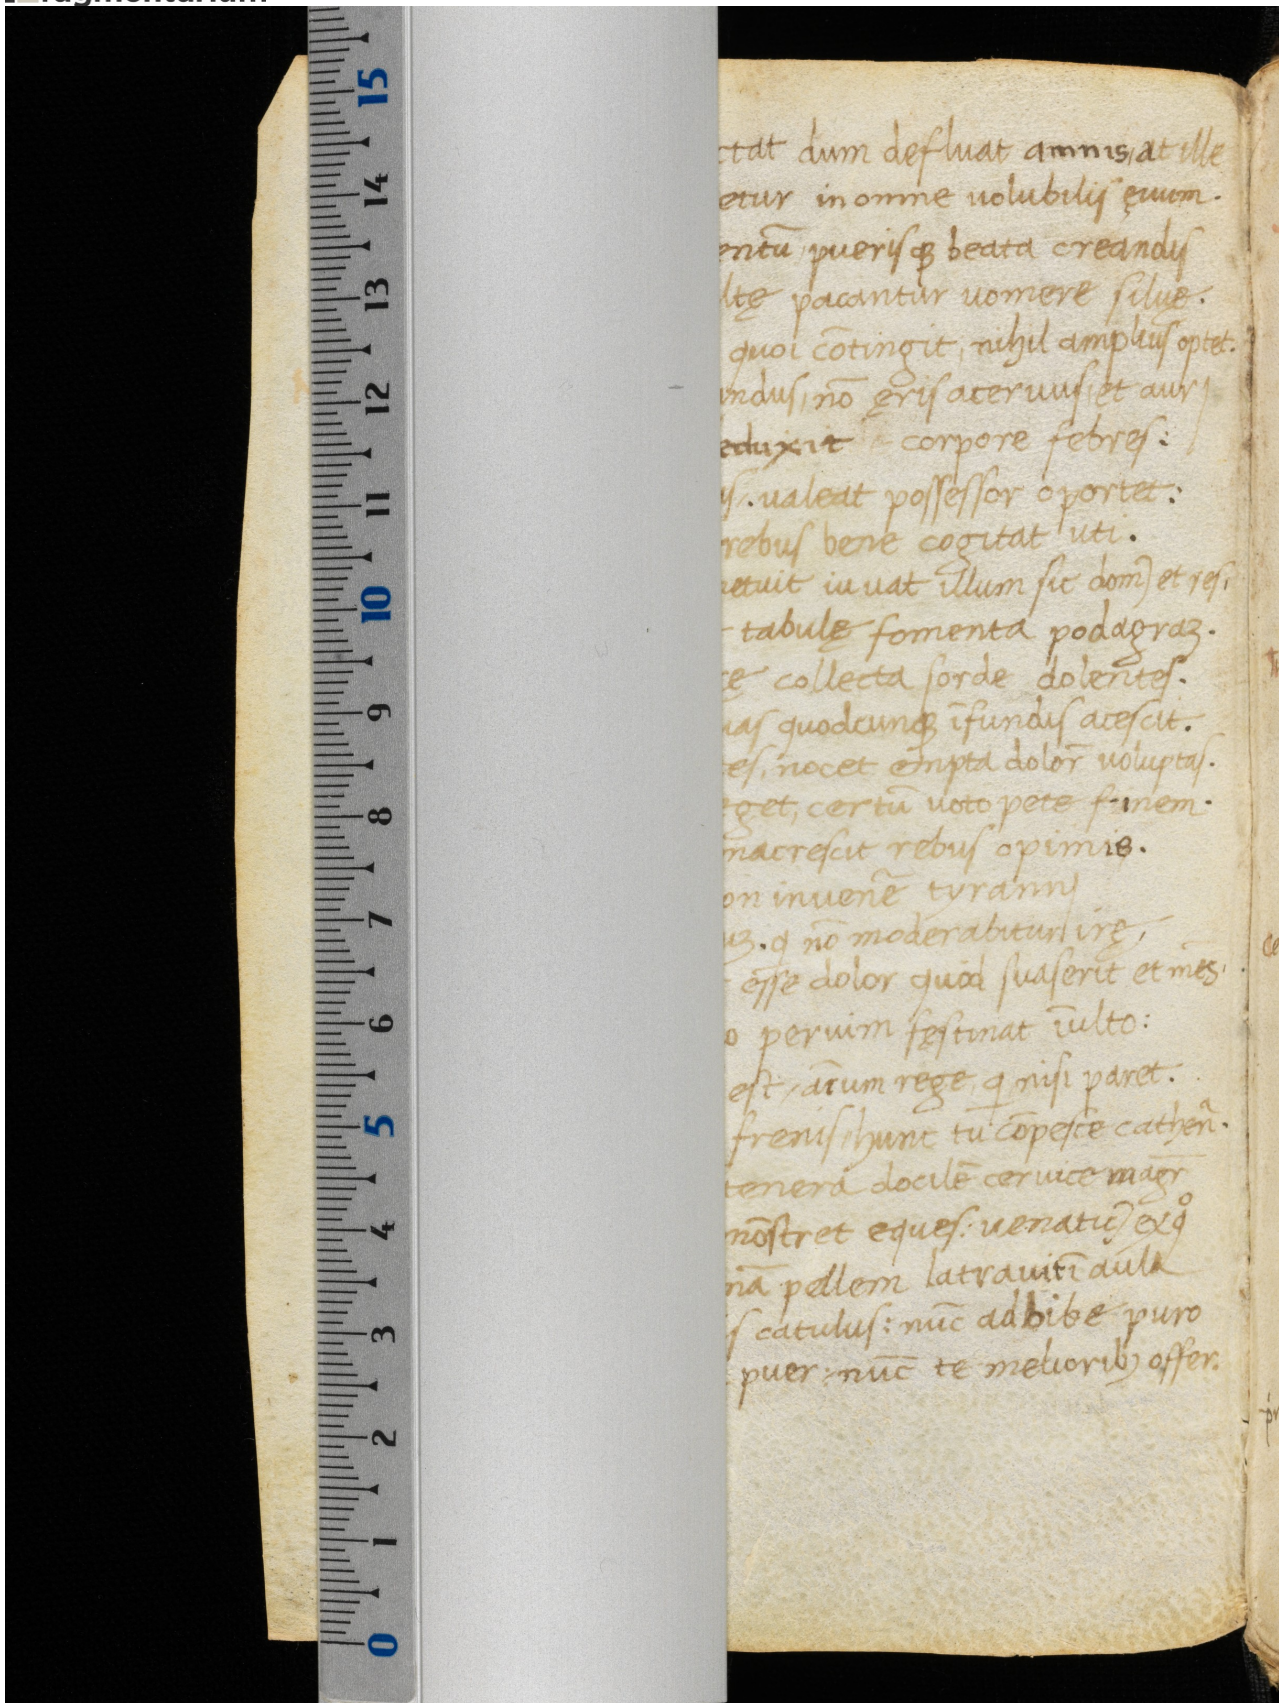 ctat dum defluat amnis, at ille
etur in omne volubilis ęuum.
entū puerisqꝫ beata creandis
ltę pacantur uomere siluę.
quoi cōtingit, nihil amplius optet.
undus, nō ęris aceruus, et auri
eduxit corpore febres:
is. ualeat possessor oportet:
rebus bene cogitat uti.
etuit iuuat illum sic domꝰ et res,
tabulę fomenta podagraꝫ.
cę collecta sorde dolentes.
uas quodcunqꝫ īfundis acescit.
es, nocet empta dolor̄ voluptas.
eget, certū uoto pete finem.
macrescit rebus opimis.
on inuenē tyranni
uꝫ. q nō moderabitur irę,
esse dolor quod suaserit et mēs,
o peruim fęstinat iūlto:
est, aīum rege, q nisi paret.
frenis, hunc tu cōpesce cathen̄.
tenera docilē ceruice magr̄
mōstret eques: uenaticꝰ ex qͦ
nā pellem latrauit ī aula
is catulus: nūc adbibe puro
puer: nūc te melioribꝫ offer.